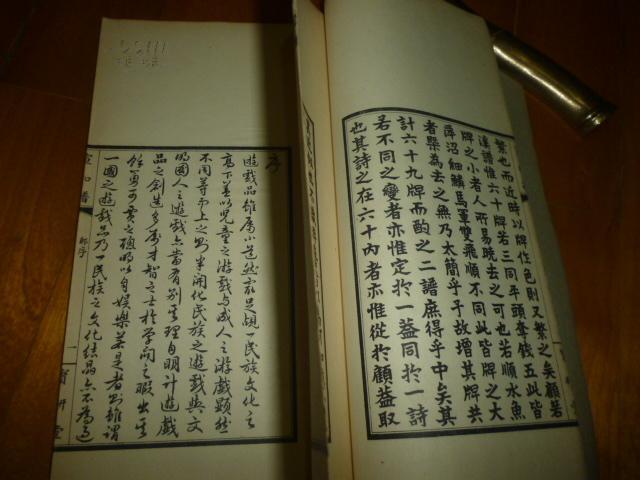 繁也而近時以牌作色則又繁之矣顧若
漢譜惟六十牌若三同平頭奪錢五此皆
牌之小者人所易曉去之可也若順水魚
萍沼細鱗馬軍雙飛順不同此皆牌之大
者槩為去之無乃太簡乎予故增其牌共
計六十九牌而酌之二譜庶得乎中矣其
若不同之變者亦惟定於一益同於一詩
也其詩之在六十內者亦惟從於顧益取
序
遊戲品雖屬小道然最足覘一民族文化之
高下蓋以兒童之遊戲與成人之遊戲顯然
不同等而上之則半開化民族之遊戲與文
明國人之遊戲亦當有別其理自明計遊戲
品之創造多屬才智之士於學問之暇出其
餘勇可賈之聰明以自娛樂若是者雖謂
一國之遊戲品乃一民族之文化結晶亦不為過
宣和譜
序
一